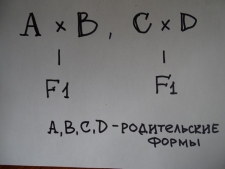 A × B, C × D
| |
F1 F1
A, B, C, D - РОДИТЕЛЬСКИЕ
ФОРМЫ